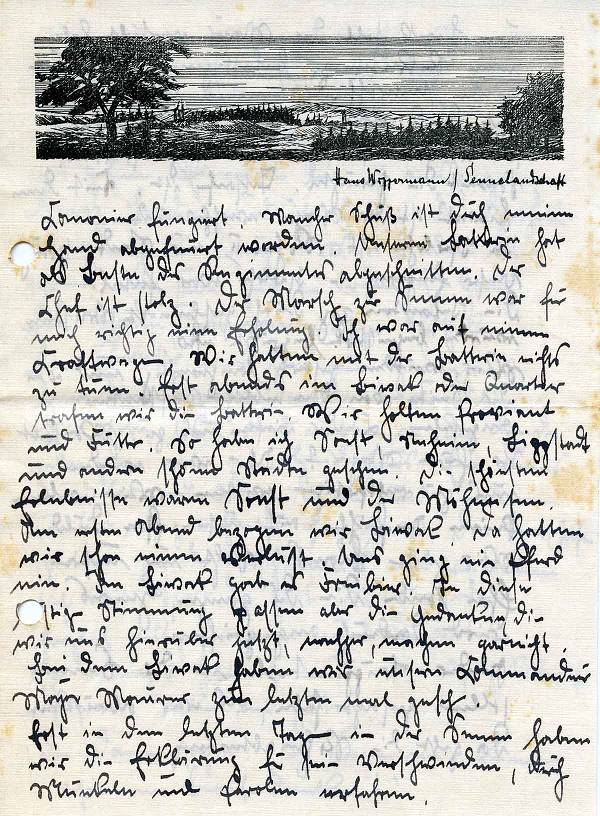 Hans Wippermann / Sennelandschaft
Kanonier fungiert. Mancher Schuß ist durch meine
Hand abgefeuert worden. Unsere Batterie hat
als Beste des Regimentes abgeschnitten. Der
Chef ist stolz. Der Marsch zur Senne war für
mich richtig eine Erholung. Ich war auf einem
Kraftwagen. Wir hatten mit der Batterie nichts
zu tuen. Erst abends im Biwak oder Quartier
trafen wir die Batterie. Wir holten Proviant
und Futter. So habe ich Soest, Neheim, Lippstadt
und andere schöne Städte gesehen. Die schönsten
Erlebnisse waren Soest und der Möhnesee.
Am ersten Abend bezogen wir Biwak. Da hatten
wir schon einen Verlust. Uns ging ein Pferd
ein. Im Biwak gab es Freibier. In diese
lustige Stimmung passen aber die Gedanken, die
wir uns hierüber jetzt, nachher, machen garnicht.
Bei dem Biwak haben wir unsern Kommandeur
Major Maurer zum letzten mal gesehen.
Erst in den letzten Tagen in der Senne haben
wir die Erklärung für sein Verschwinden, durch
Munkeln und Parolen erfahren.